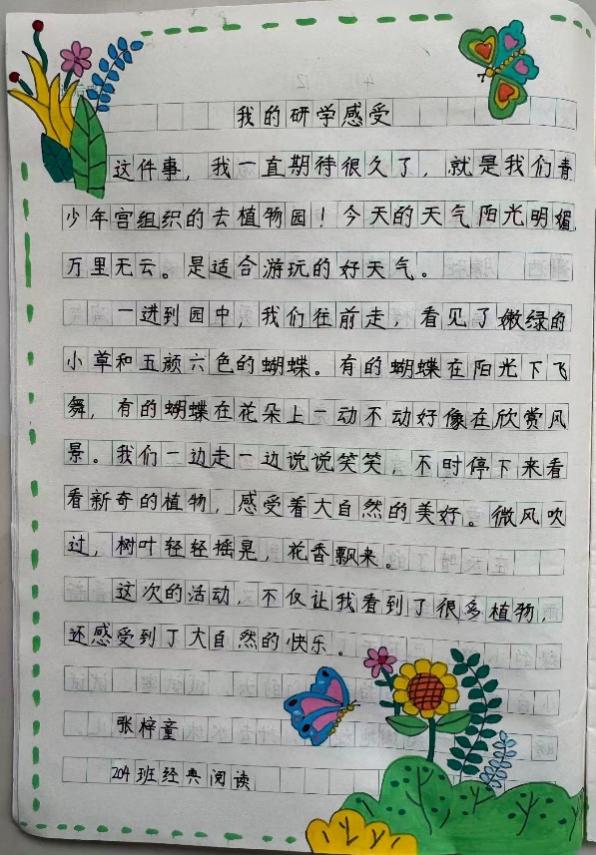 我的研学感受
这件事，我一直期待很久了，就是我们青
少年宫组织的去植物园！今天的天气阳光明媚，
万里无云。是适合游玩的好天气。
一进到园中，我们往前走，看见了嫩绿的
小草和五颜六色的蝴蝶。有的蝴蝶在阳光下飞
舞，有的蝴蝶在花朵上一动不动好像在欣赏风
景。我们一边走一边说说笑笑，不时停下来看
看新奇的植物，感受着大自然的美好。微风吹
过，树叶轻轻摇晃，花香飘来。
这次的活动，不仅让我看到了很多植物，
还感受到了大自然的快乐。
张梓童
204班经典阅读